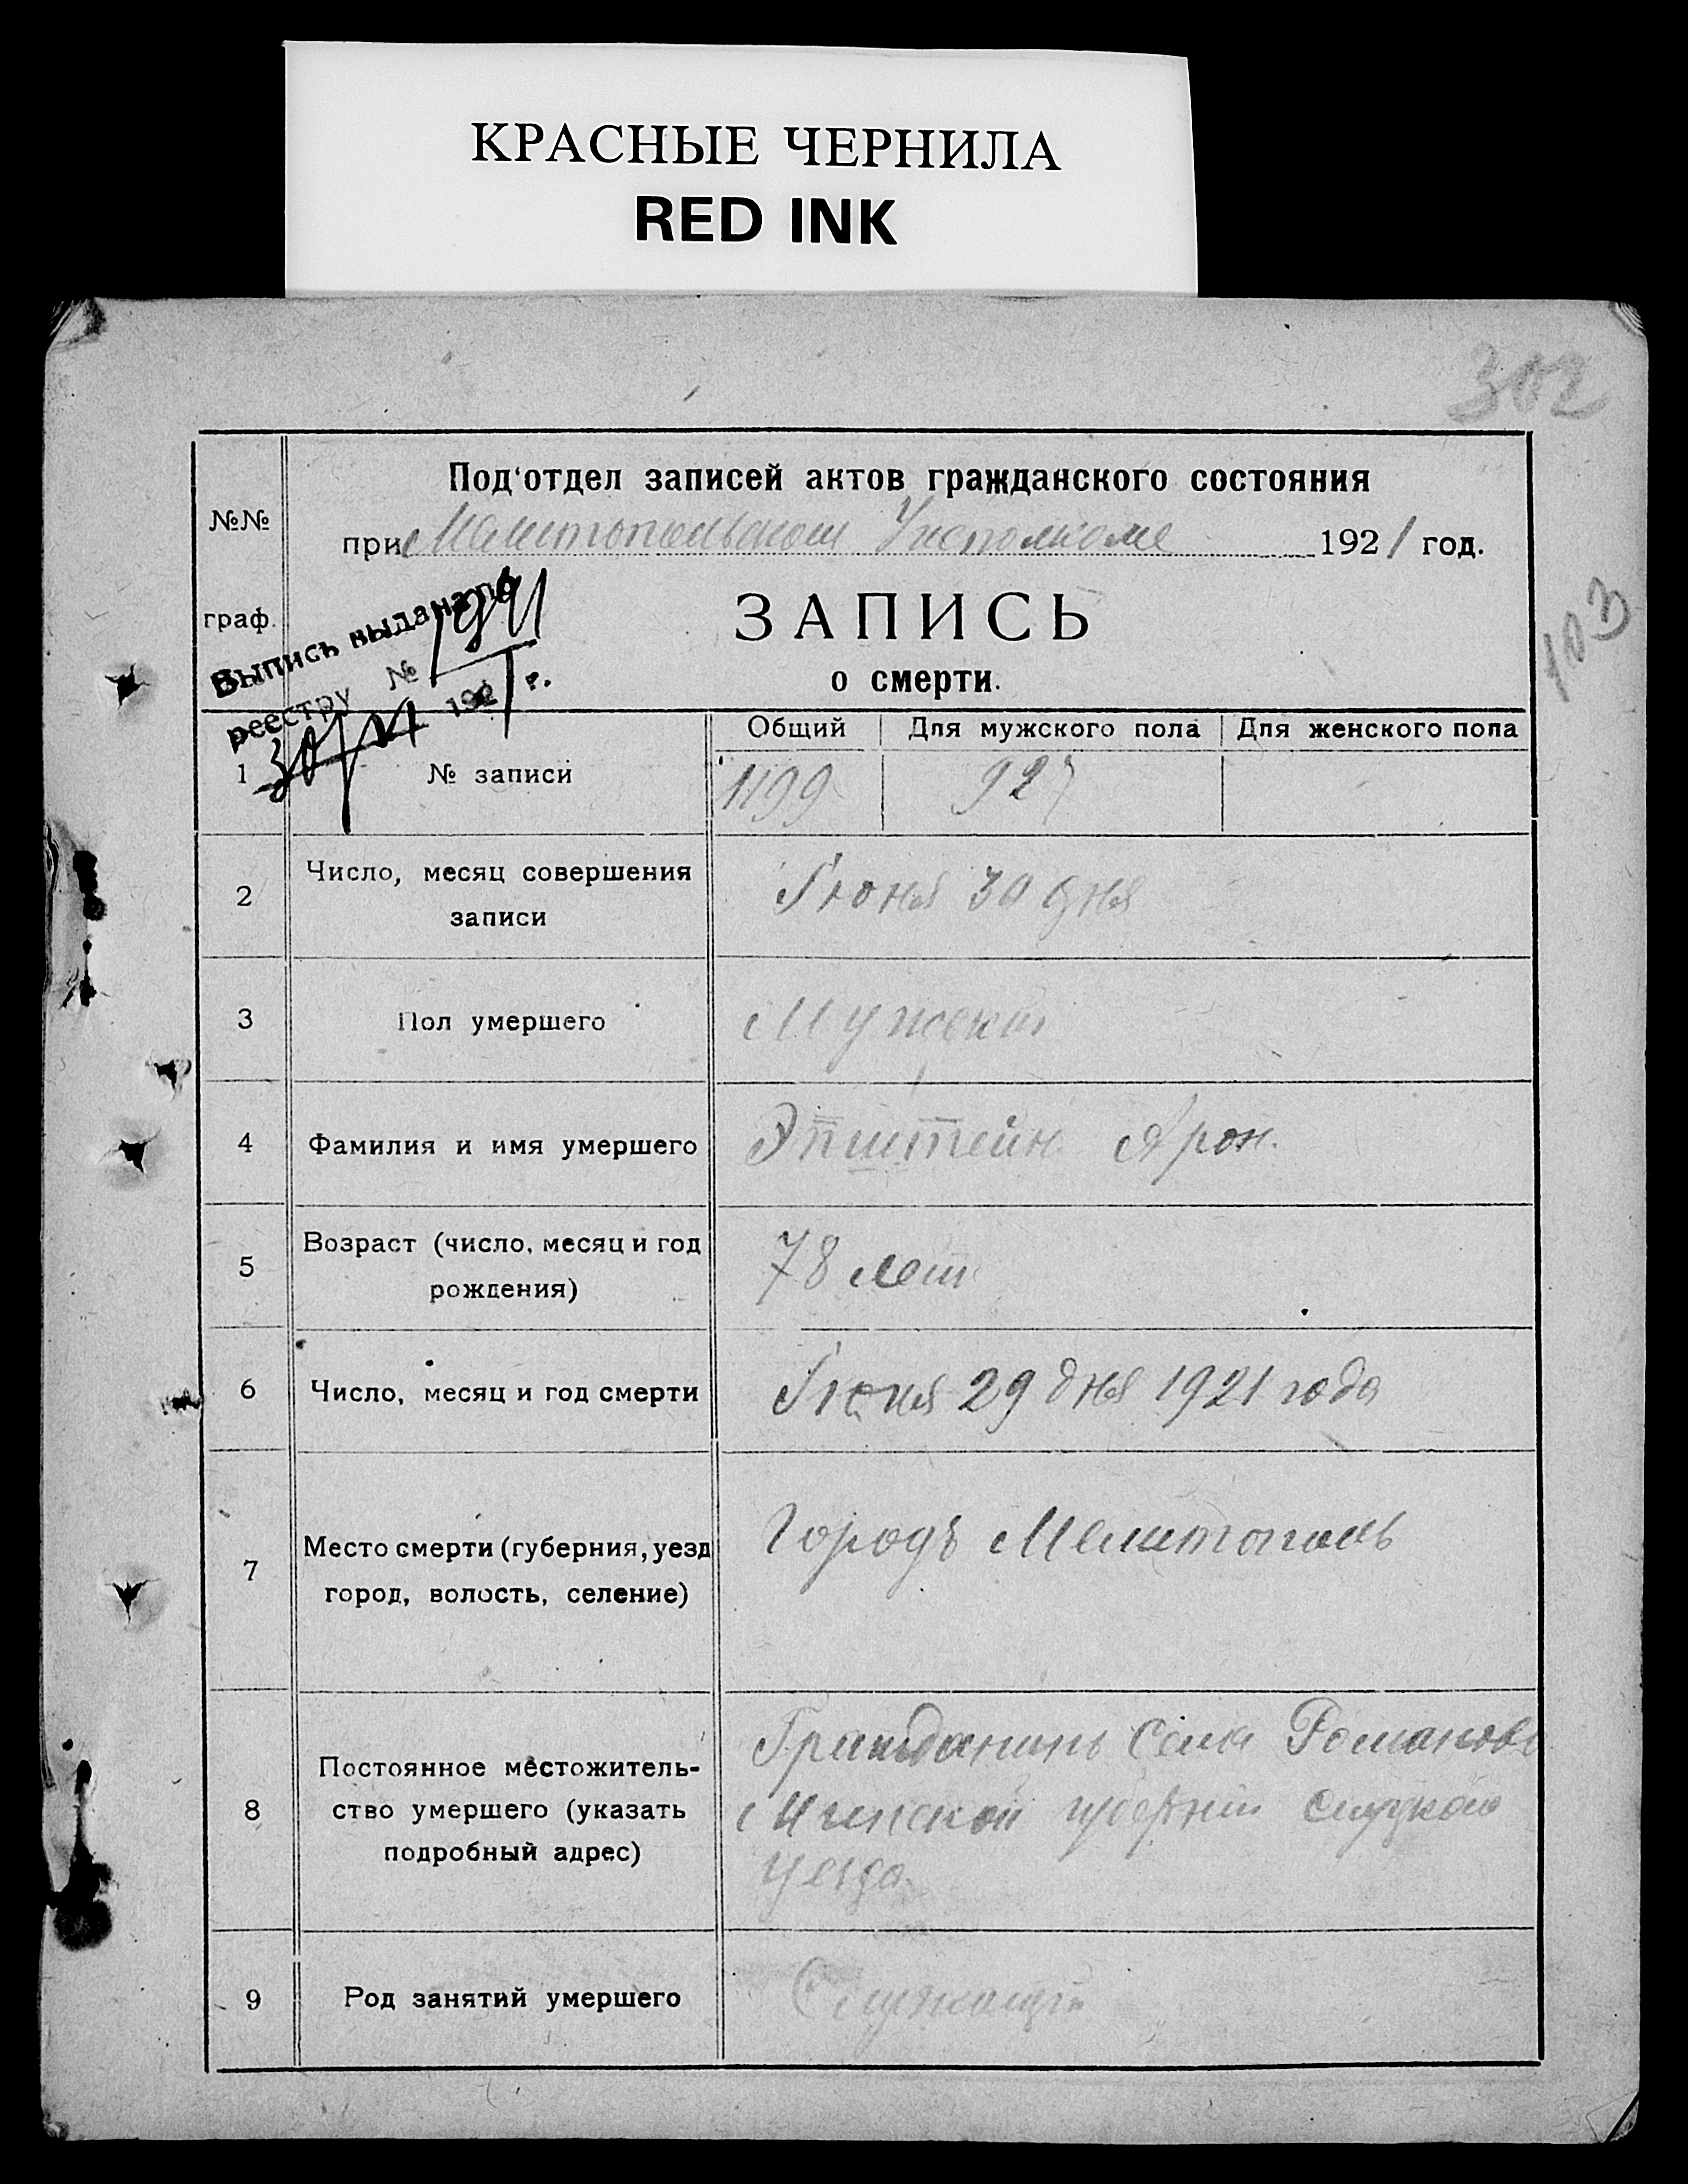 КРАСНЫЕ ЧЕРНИЛА
RED INK
302
Под‘отдел записей актов гражданского состояния
№№
при Мелитопольском Исполкоме 1921 год.
граф.
103
ЗАПИСЬ
о смерти.
Выпись выдана по
реестру №
192 1 г.
30/VI
Общий Для мужского пола Для женского пола
1 № записи 1199 927
2 Число, месяц совершения
записи
Июня 30 дня
3 Пол умершего Мужской
4 Фамилия и имя умершего Эпштейн Арон.
5 Возраст (число, месяц и год
рождения)
78 лет
6 Число, месяц и год смерти Июня 29 дня 1921 года
7 Место смерти (губерния, уезд
город, волость, селение)
Городъ Мелитополь
8 Постоянное местожитель-
ство умершего (указать
подробный адрес)
Гражданинъ Села Романово
Минской губернии Слуцкого
уезда
9 Род занятий умершего Служащий